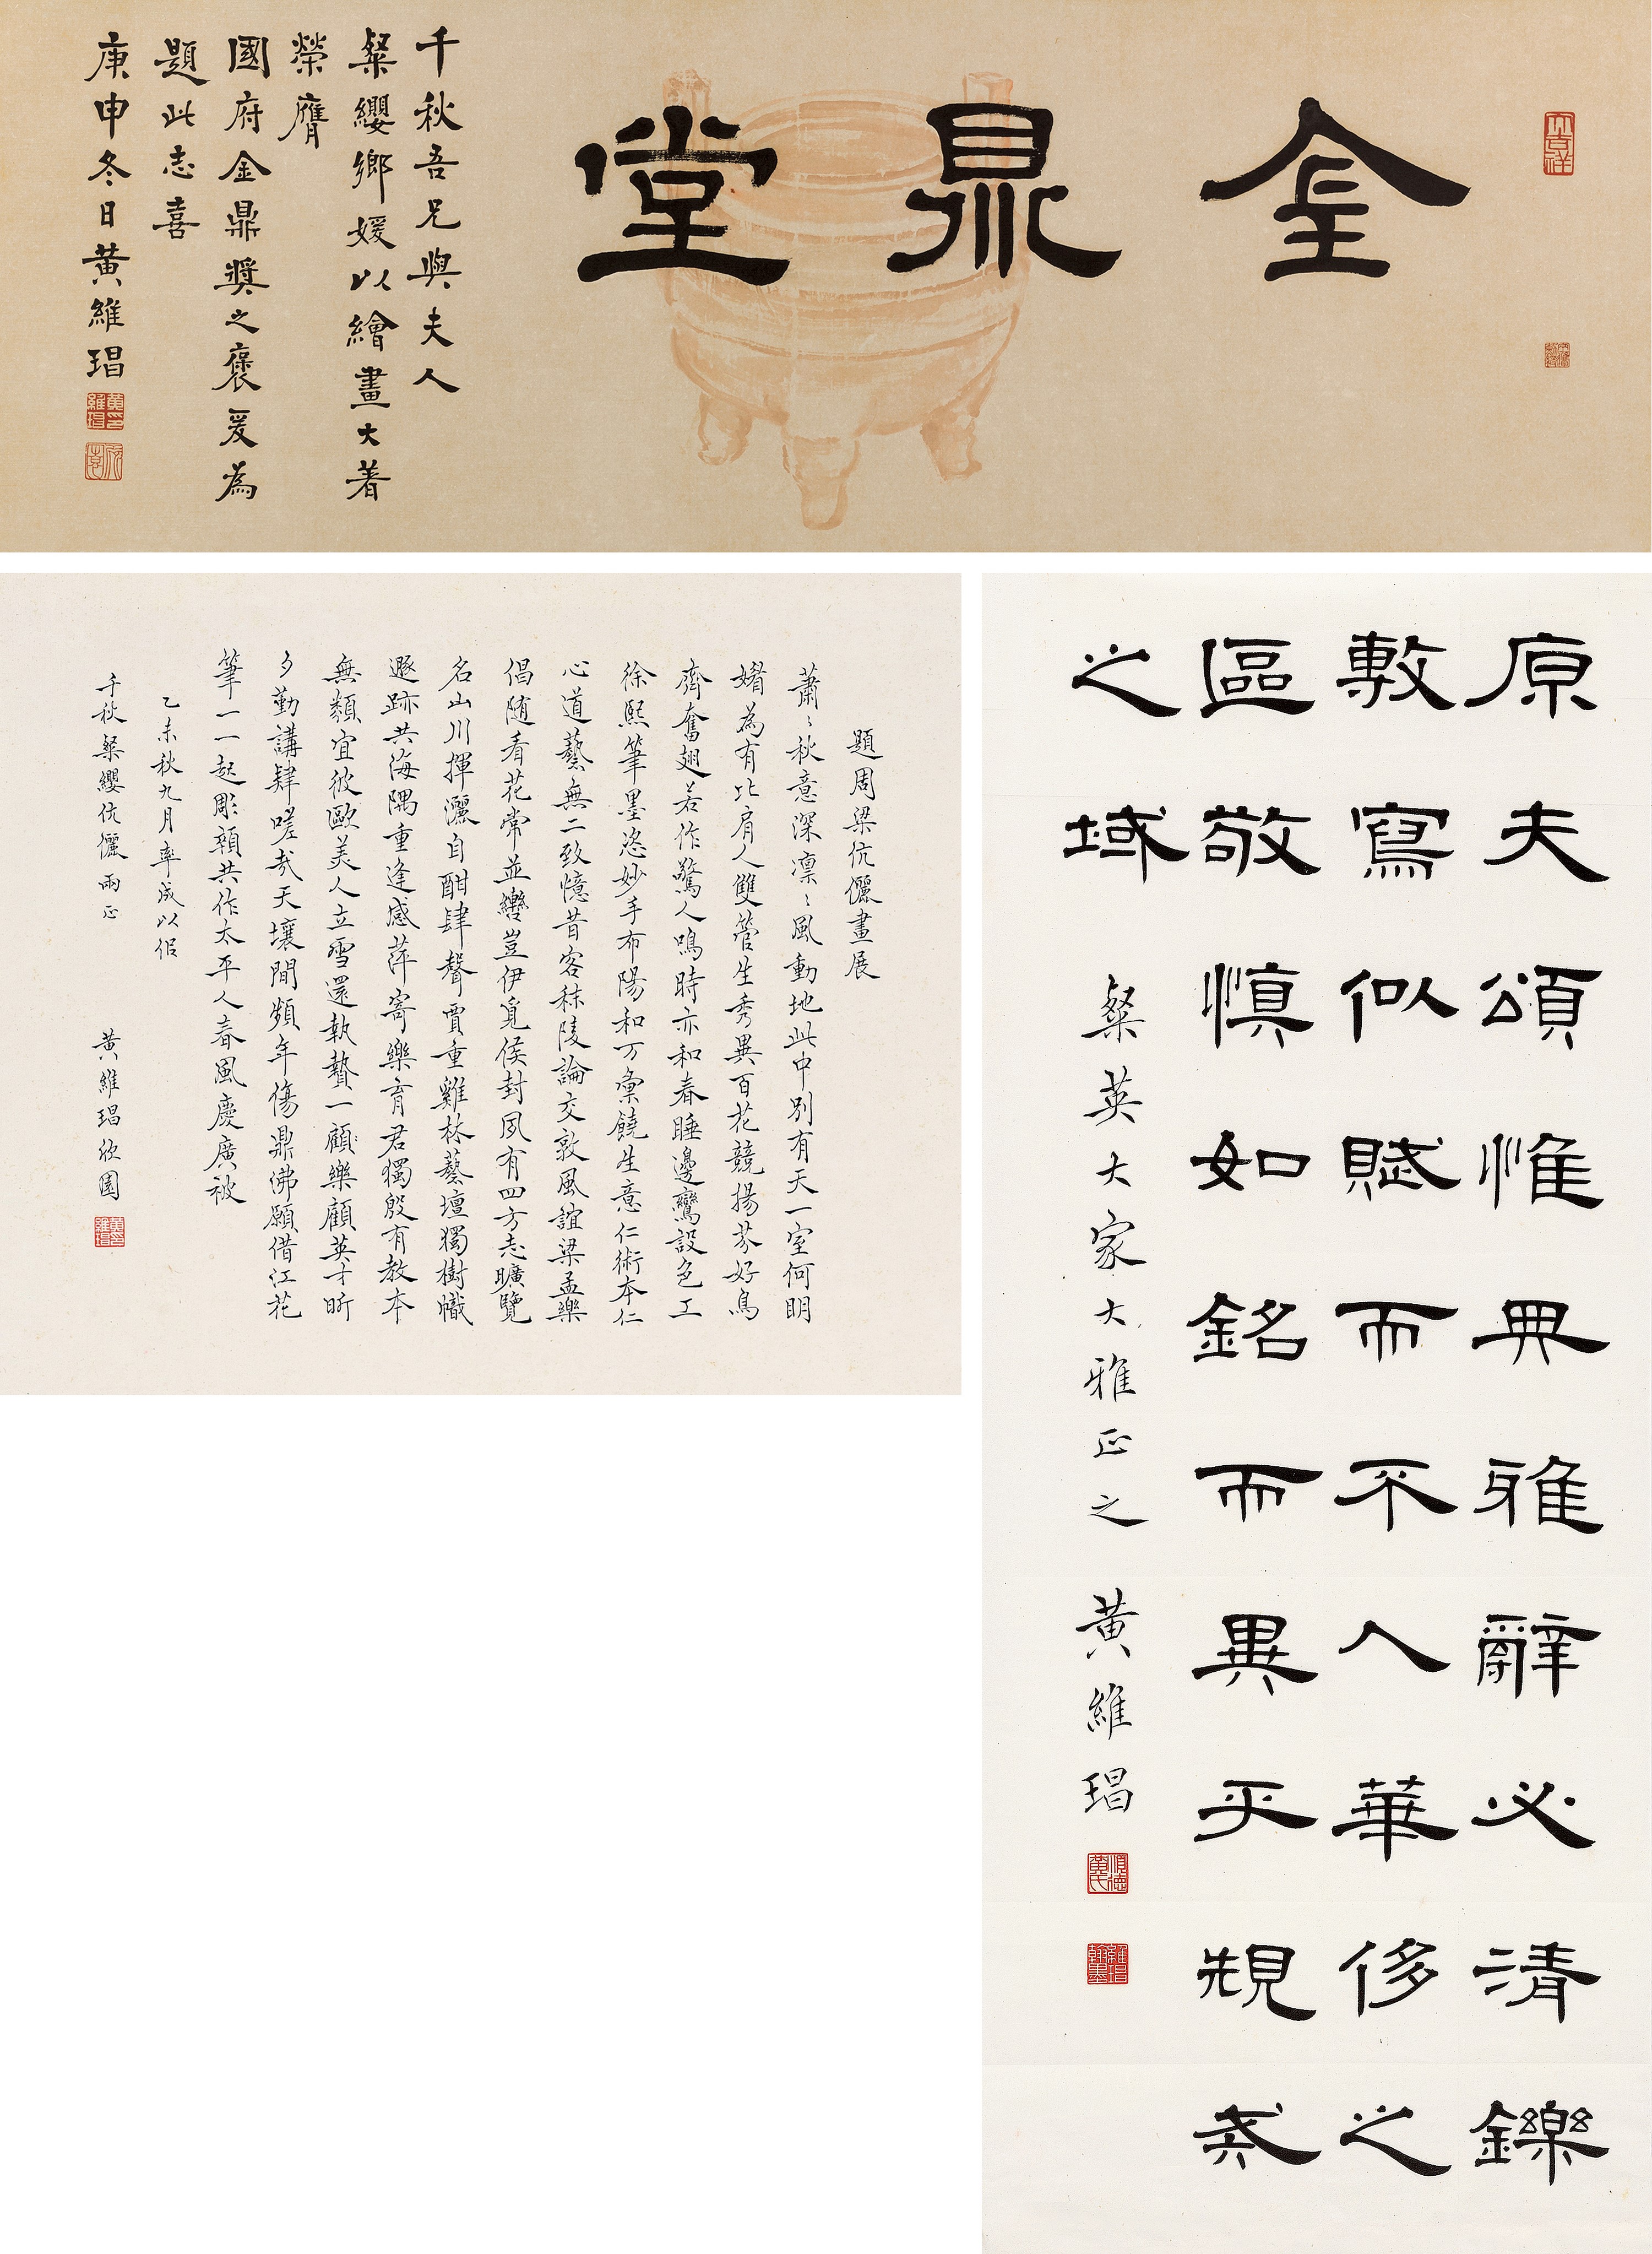 金鼎堂
千秋吾兄與夫人
粲纓鄉媛以繪畫大著
榮膺
國府金鼎獎之褒爰為
題此志喜
庚申冬日黃維琩
題周梁伉儷畫展
蕭〻秋意深凛〻風動地此中別有天一室何明
媚為有比肩人雙管生秀異百花競揚芬好鳥
齊奮翅若作驚人鳴時亦和春睡邊鸞設色工
徐熙筆墨恣妙手布陽和万彙饒生意仁術本仁
心道藝無二致憶昔客秣陵論交敦風誼梁孟樂
倡随看花常並轡豈伊覓侯封夙有四方志曠覽
名山川揮灑自酣肆聲賈重雞林藝壇獨樹幟
遯跡共海隅重逢感萍寄樂育君獨殷有教本
無類宜彼歐美人立雪還執贄一顧樂顧英才昕
夕勤講肄嗟哉天壤間頻年傷鼎沸願借江花
筆一一起彫顇共作太平人春風慶廣被
乙未秋九月率成以侣
千秋粲纓伉儷兩正
黃維琩欣園
原夫頌惟典雅辭必清鑠
敷寫似賦而不入華侈之
區敬慎如銘而異乎規戒
之域
粲英大家大雅正之
黃維琩